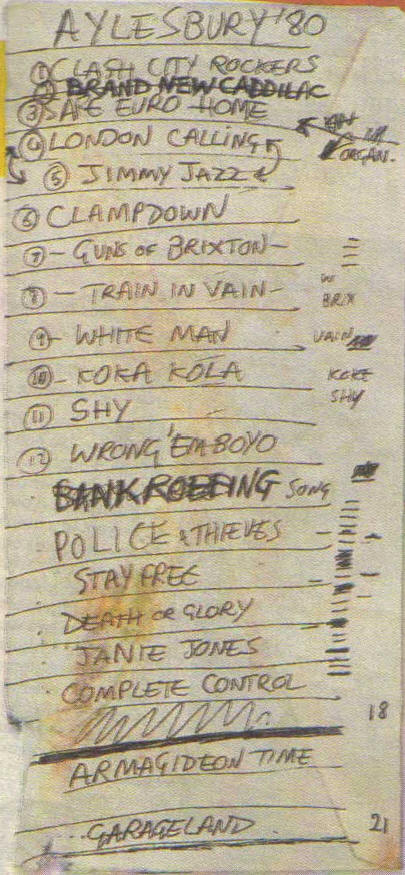 AYLESBURY '80
① CLASH CITY ROCKERS
② BRAND NEW CADDILAC
③ SAFE EURO HOME
④ LONDON CALLING
ORGAN.
⑤ JIMMY JAZZ
⑥ CLAMPDOWN
⑦ - GUNS OF BRIXTON -
⑧ - TRAIN IN VAIN - W BRIX
⑨ - WHITE MAN VAIN
⑩ - KOKA KOLA KOKE
⑪ SHY SHY
⑫ WRONG 'EM BOYO
BANK ROBBING SONG
POLICE & THIEVES
STAY FREE
DEATH OR GLORY
JANIE JONES
COMPLETE CONTROL
18
ARMAGIDEON TIME
GARAGELAND 21